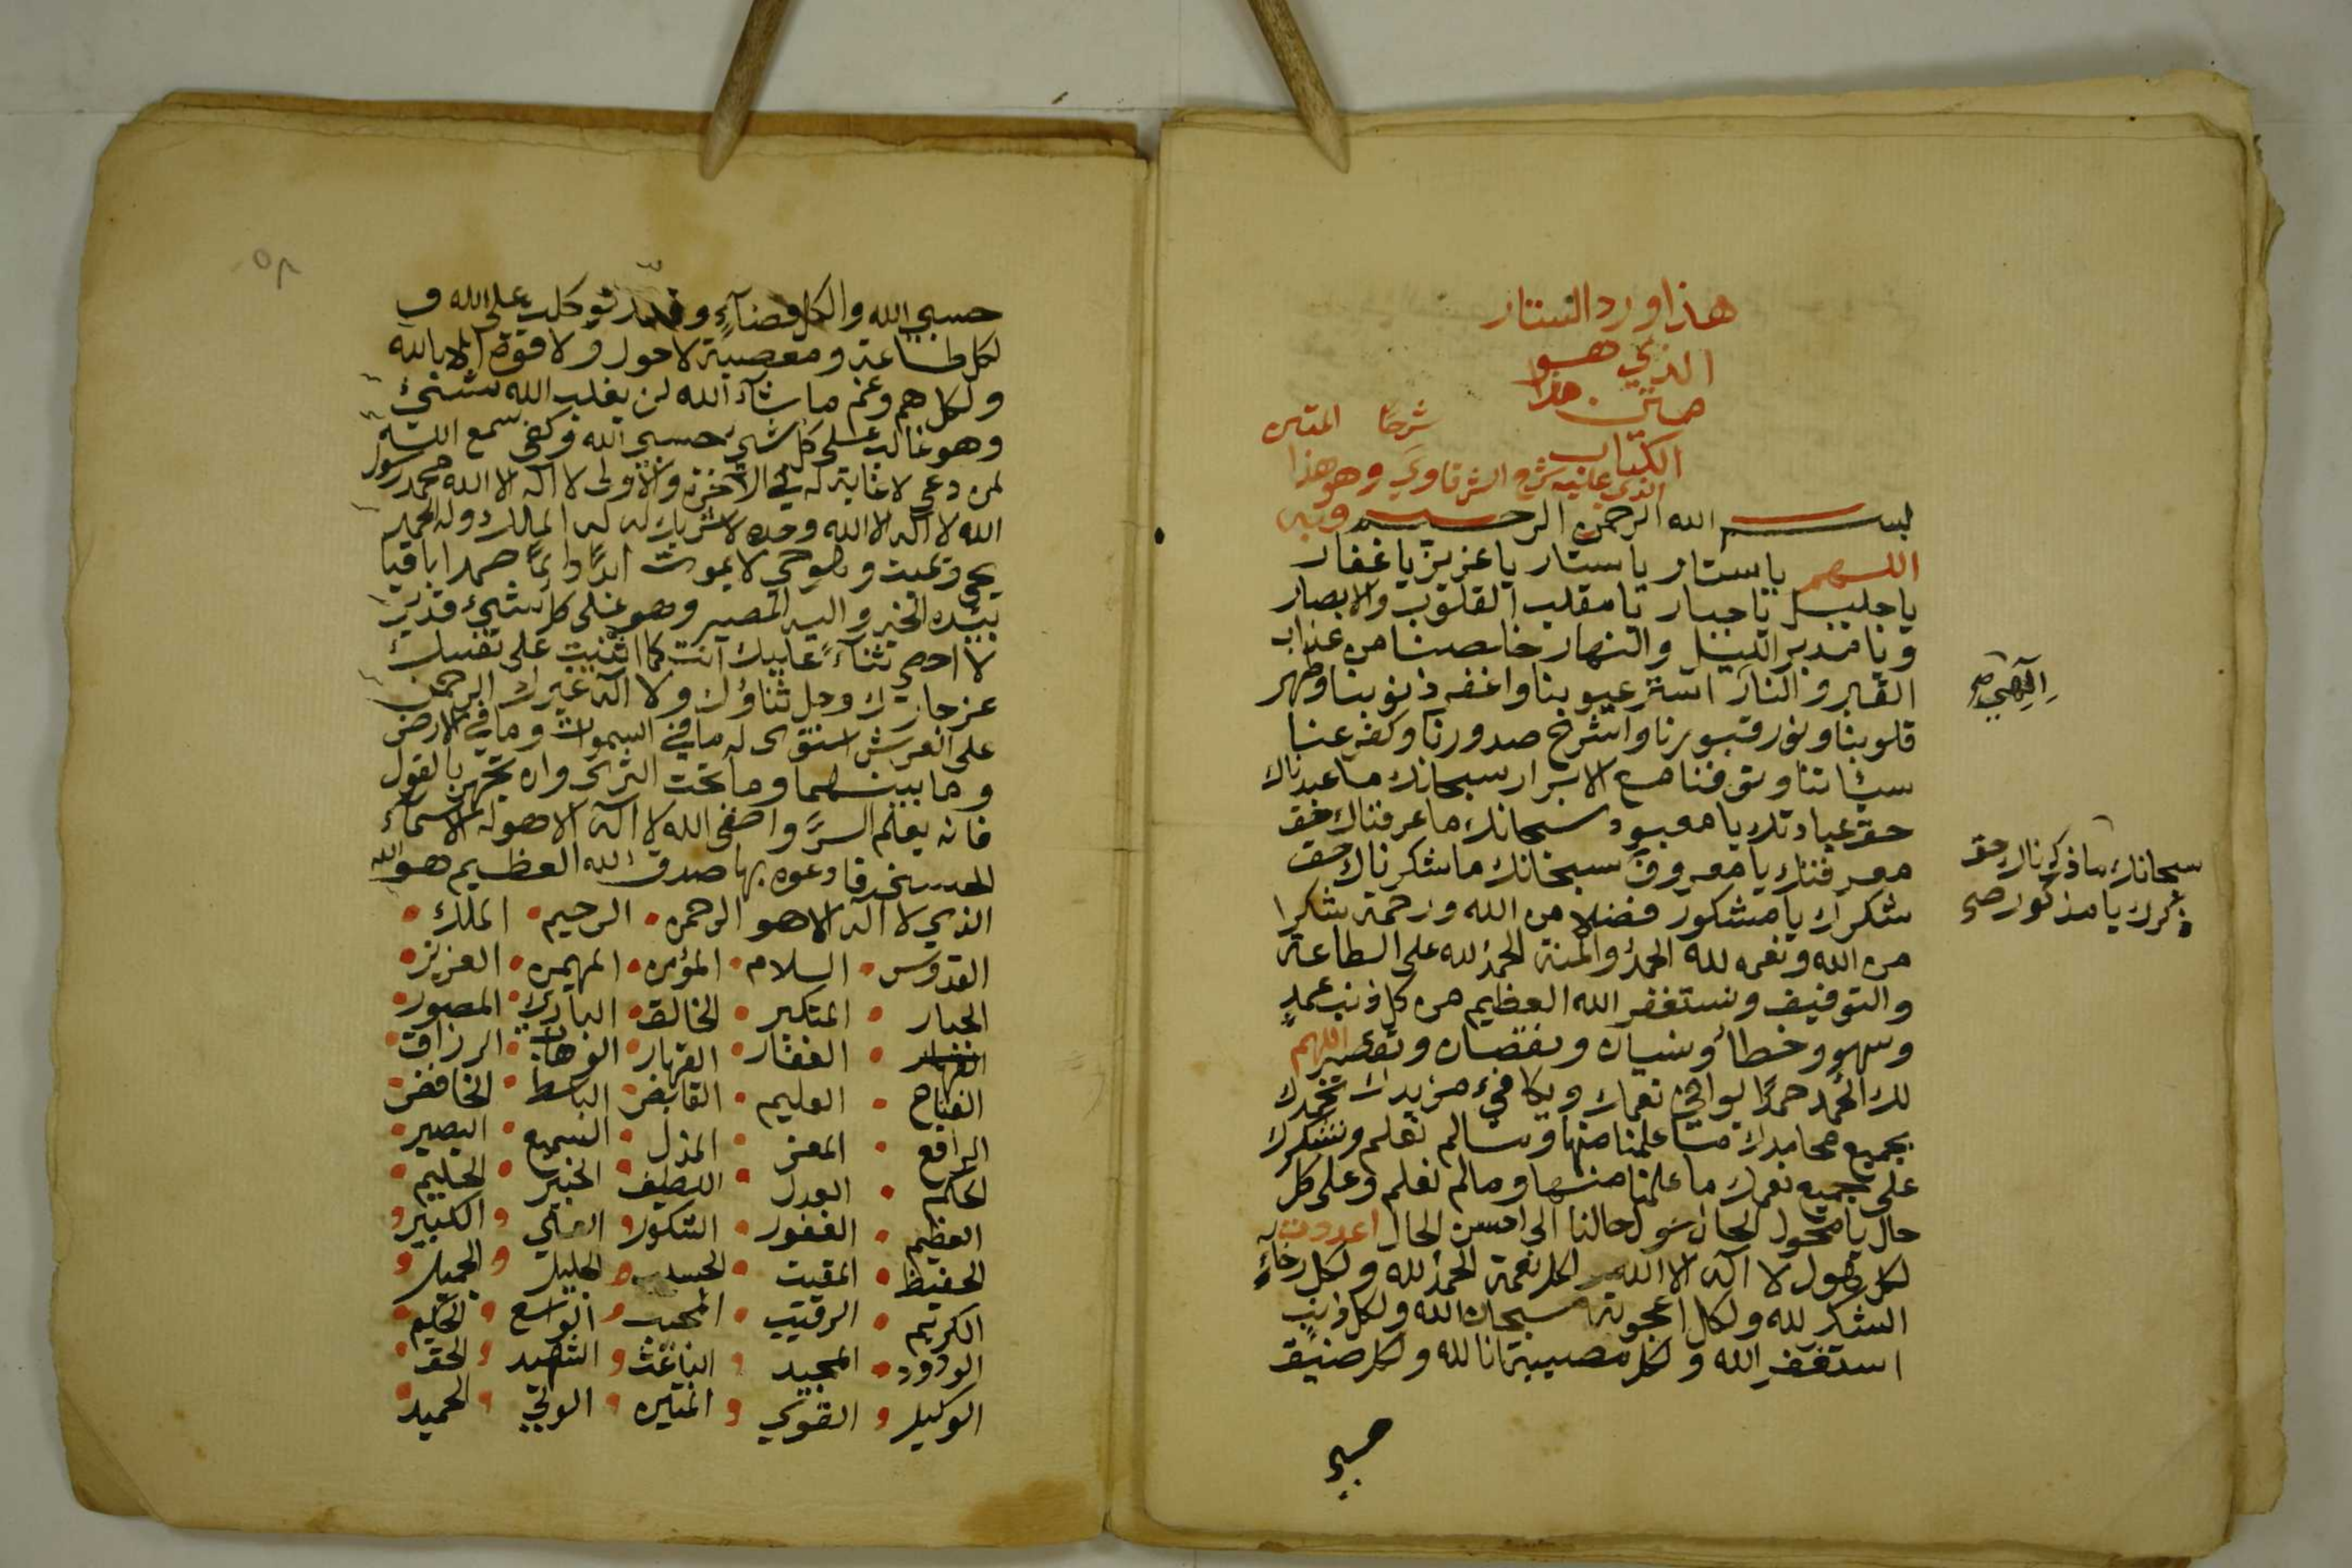 هذا ورد الستار
الذي هو
متن هذا
الكتاب
شرحا المتن
الذي عليه شرح الشرقاوي وهو هذا
بسم الله الرحمن الرحيم وبه
اللهم يا ستار يا ستار يا عزيز يا غفار
يا جليل يا جبار يا مقلب القلوب والابصار
ويا مدبر الليل والنهار خلصنا من عذاب
القبر والنار استر عيوبنا واغفر ذنوبنا وطهر
قلوبنا ونور قبورنا واشرح صدورنا وكفر عنا
سيئاتنا وتوفنا مع الابرار سبحانك ما عبدناك
حق عبادتك يا معبود سبحانك ما عرفناك حق
معرفتك يا معروف سبحانك ما شكرناك حق
شكرك يا مشكور فضلا من الله ورحمة شكرا
من الله ونعمه لله الحمد والمنة الحمد لله على الطاعة
والتوفيق ونستغفر الله العظيم من كل ذنب عمد
وسهو وخطأ ونسيان ونقصان وتقصير اللهم
لك الحمد حمدا يوافي نعمك ويكافئ مزيدك نحمدك
بجميع محامدك ما علمنا منها وما لم نعلم ونشكرك
على جميع نعمك ما علمنا منها وما لم نعلم وعلى كل
حال يا محول الحال حول حالنا الى احسن الحال اعددت
لكل هول لا اله الا الله ولكل نعمة الحمد لله ولكل رخاء
الشكر لله ولكل اعجوبة سبحان الله ولكل ذنب
استغفر الله ولكل مصيبة انا لله ولكل ضيق
حسبي
الهي صح
سبحانك ما ذكرناك حق
ذكرك يا مذكور صح
٥٨
حسبي الله ولكل قضاء وقدر توكلت على الله و
لكل طاعة ومعصية لا حول ولا قوة الا بالله
ولكل هم وغم ما شاء الله لن يغلب الله شيئ
وهو غالب على كل شي حسبي الله وكفى سمع الله
لمن دعى لا غاية له في الآخرة والاولى لا اله الا الله محمد رسول
الله لا اله الا الله وحده لا شريك له له الملك وله الحمد
يحي ويميت وهو حي لا يموت ابدا دائما صمدا باقيا
بيده الخير واليه المصير وهو على كل شيئ قدير
لا احصي ثناء عليك انت كما اثنيت على نفسك
عز جارك وجل ثناؤك ولا اله غيرك الرحمن
على العرش استوى له ما في السموات وما في الارض
وما بينهما وما تحت الثرى وان تجهر بالقول
فانه يعلم السر واخفى الله لا اله الا هو له الاسماء
الحسنى فادعوه بها صدق الله العظيم هو الله
الذي لا اله الا هو الرحمن الرحيم الملك
القدوس السلام المؤمن المهيمن العزيز
الجبار المتكبر الخالق البارئ المصور
القهار الغفار القهار الوهاب الرزاق
الفتاح العليم القابض الباسط الخافض
الرافع المعز المذل السميع البصير
الحكم العدل اللطيف الخبير الحليم
العظيم الغفور الشكور العلي الكبير
الحفيظ المقيت الحسيب الجليل الجميل
الكريم الرقيب المجيب الواسع الحكيم
الودود المجيد الباعث الشهيد الحق
الوكيل القوي المتين الولي الحميد